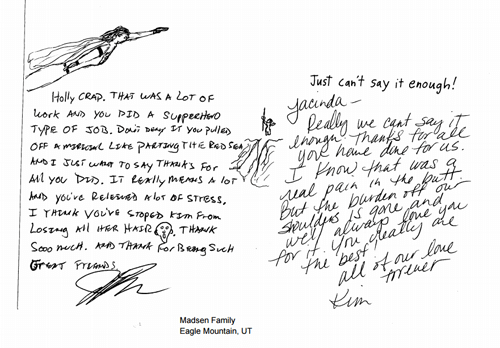 Holly CRAP. THAT WAS A LOT OF
WORK AND YOU DID A SUPERHERO
TYPE OF JOB. DON'T DENY IT YOU PULLED
OFF A MIRICAL LIKE PARTING THE RED SEA
AND I JUST WANT TO SAY THANKS FOR
All YOU DID. IT REALLY MEANS A LOT
AND YOU'VE RELEIVED A LOT OF STRESS.
I THINK YOU'VE STOPED KIM FROM
LOSING ALL HER HAIR. THANK
SOOO MUCH. AND THANK FOR BEING SUCH
GREAT FRIENDS
Just can't say it enough!
Jacinda -
Really we cant say it
enough. Thanks for all
you have done for us.
I know that was a
real pain in the butt.
But the burden off our
shoulders is gone and
we'll always love you
for it. You really are
the best!
all of our love
forever
Kim
Madsen Family
Eagle Mountain, UT